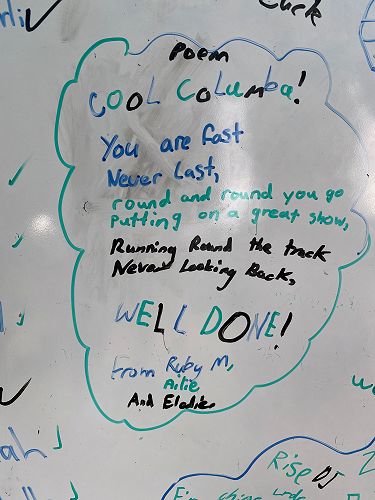 Poem
COOL COLumba!
You are fast
Never Last,
round and round you go
putting on a great show,
Running Round the track
Never Looking Back,
WELL DONE!
From Ruby M,
Ailie
And Elodie
Rise DJ